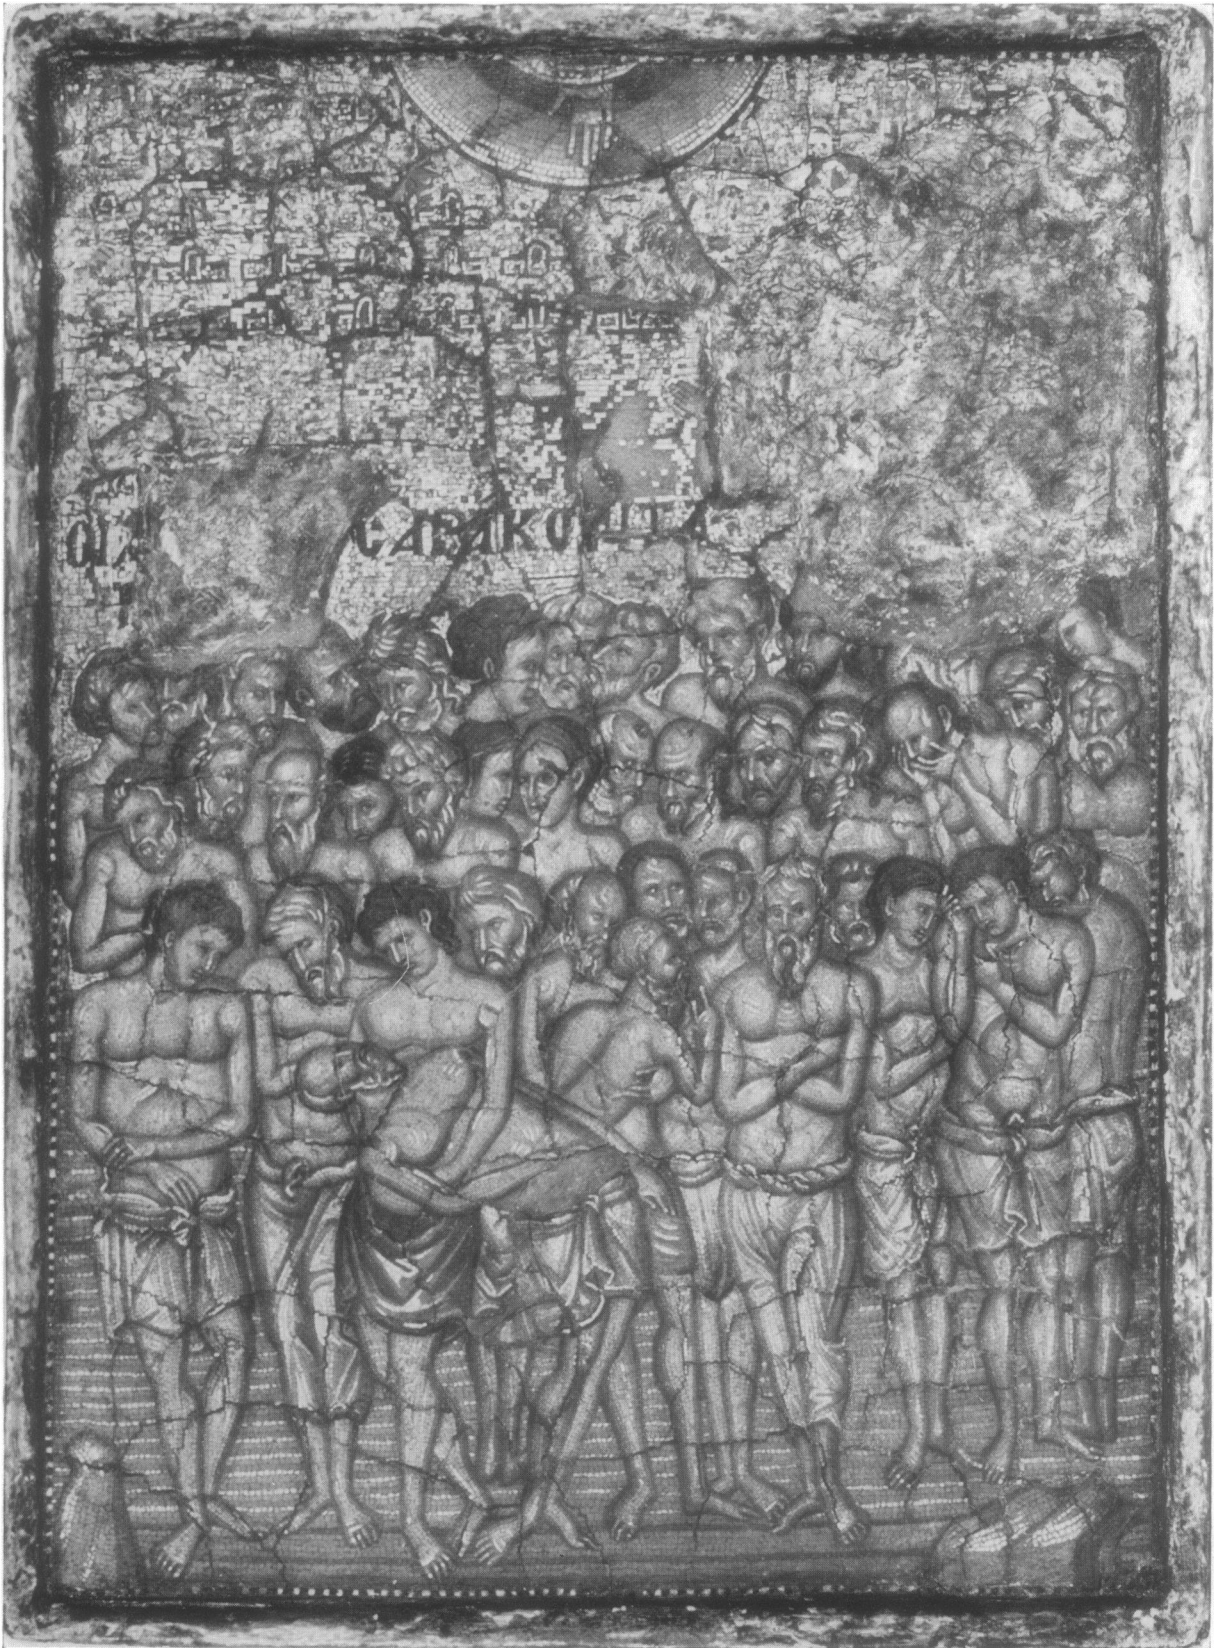 ΟΙ Α ΣΑΡΑΚΟΝΤΑ